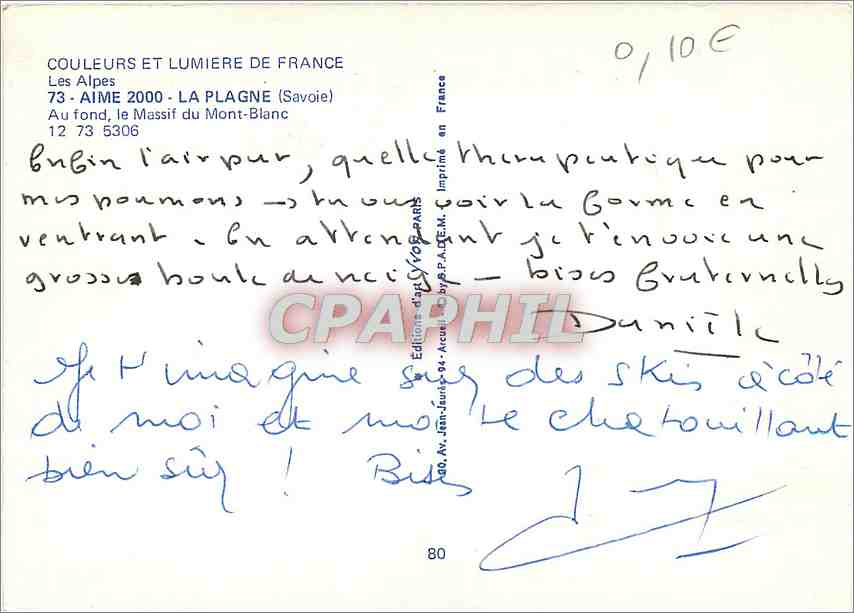 0,10€
COULEURS ET LUMIERE DE FRANCE
Les Alpes
73 - AIME 2000 - LA PLAGNE (Savoie)
Au fond, le Massif du Mont-Blanc
12 73 5306
Enfin l'air pur, quelle therapeutique pour
mes poumons → tu vas voir la forme en
rentrant. En attendant je t'envoie une
grosse boule de neige - bises fraternelles
Danièle
Je t'imagine sur des skis à côté
de moi et moi te chatouillant
bien sûr ! Bises
Editions d'art YVON PARIS
90, Av. Jean-Jaurès - 94 - Arcueil - © by S.P.A.D.E.M. Imprimé en France
80
CPAPHIL